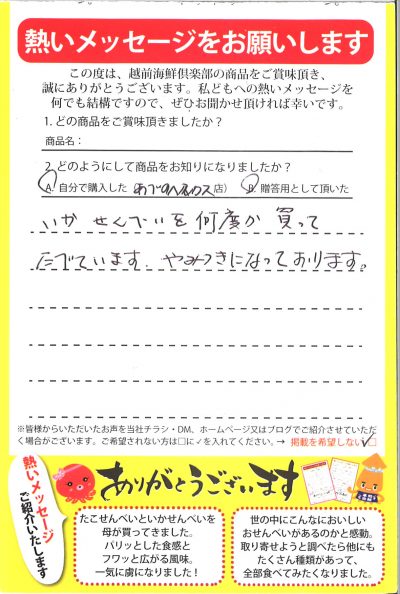 熱いメッセージをお願いします
この度は、越前海鮮倶楽部の商品をご賞味頂き、
誠にありがとうございます。私どもへの熱いメッセージを
何でも結構ですので、ぜひお聞かせ頂ければ幸いです。
1. どの商品をご賞味頂きましたか？
商品名：
2. どのようにして商品をお知りになりましたか？
A. 自分で購入した 店） B. 贈答用として頂いた
いか せんべいを何度か 買って
たべています. やみつきになっております。
※皆様からいただいたお声を当社チラシ・DM、ホームページ又はブログでご紹介させていただ
く場合がございます。ご希望されない方は□に✓を入れてください。→ 掲載を希望しない ☑
熱いメッセージ
ご紹介いたします
ありがとうございます
たこせんべいといかせんべいを
母が買ってきました。
パリッとした食感と
フワッと広がる風味。
一気に虜になりました！
世の中にこんなにおいしい
おせんべいがあるのかと感動。
取り寄せようと調べたら他にも
たくさん種類があって、
全部食べてみたくなりました。